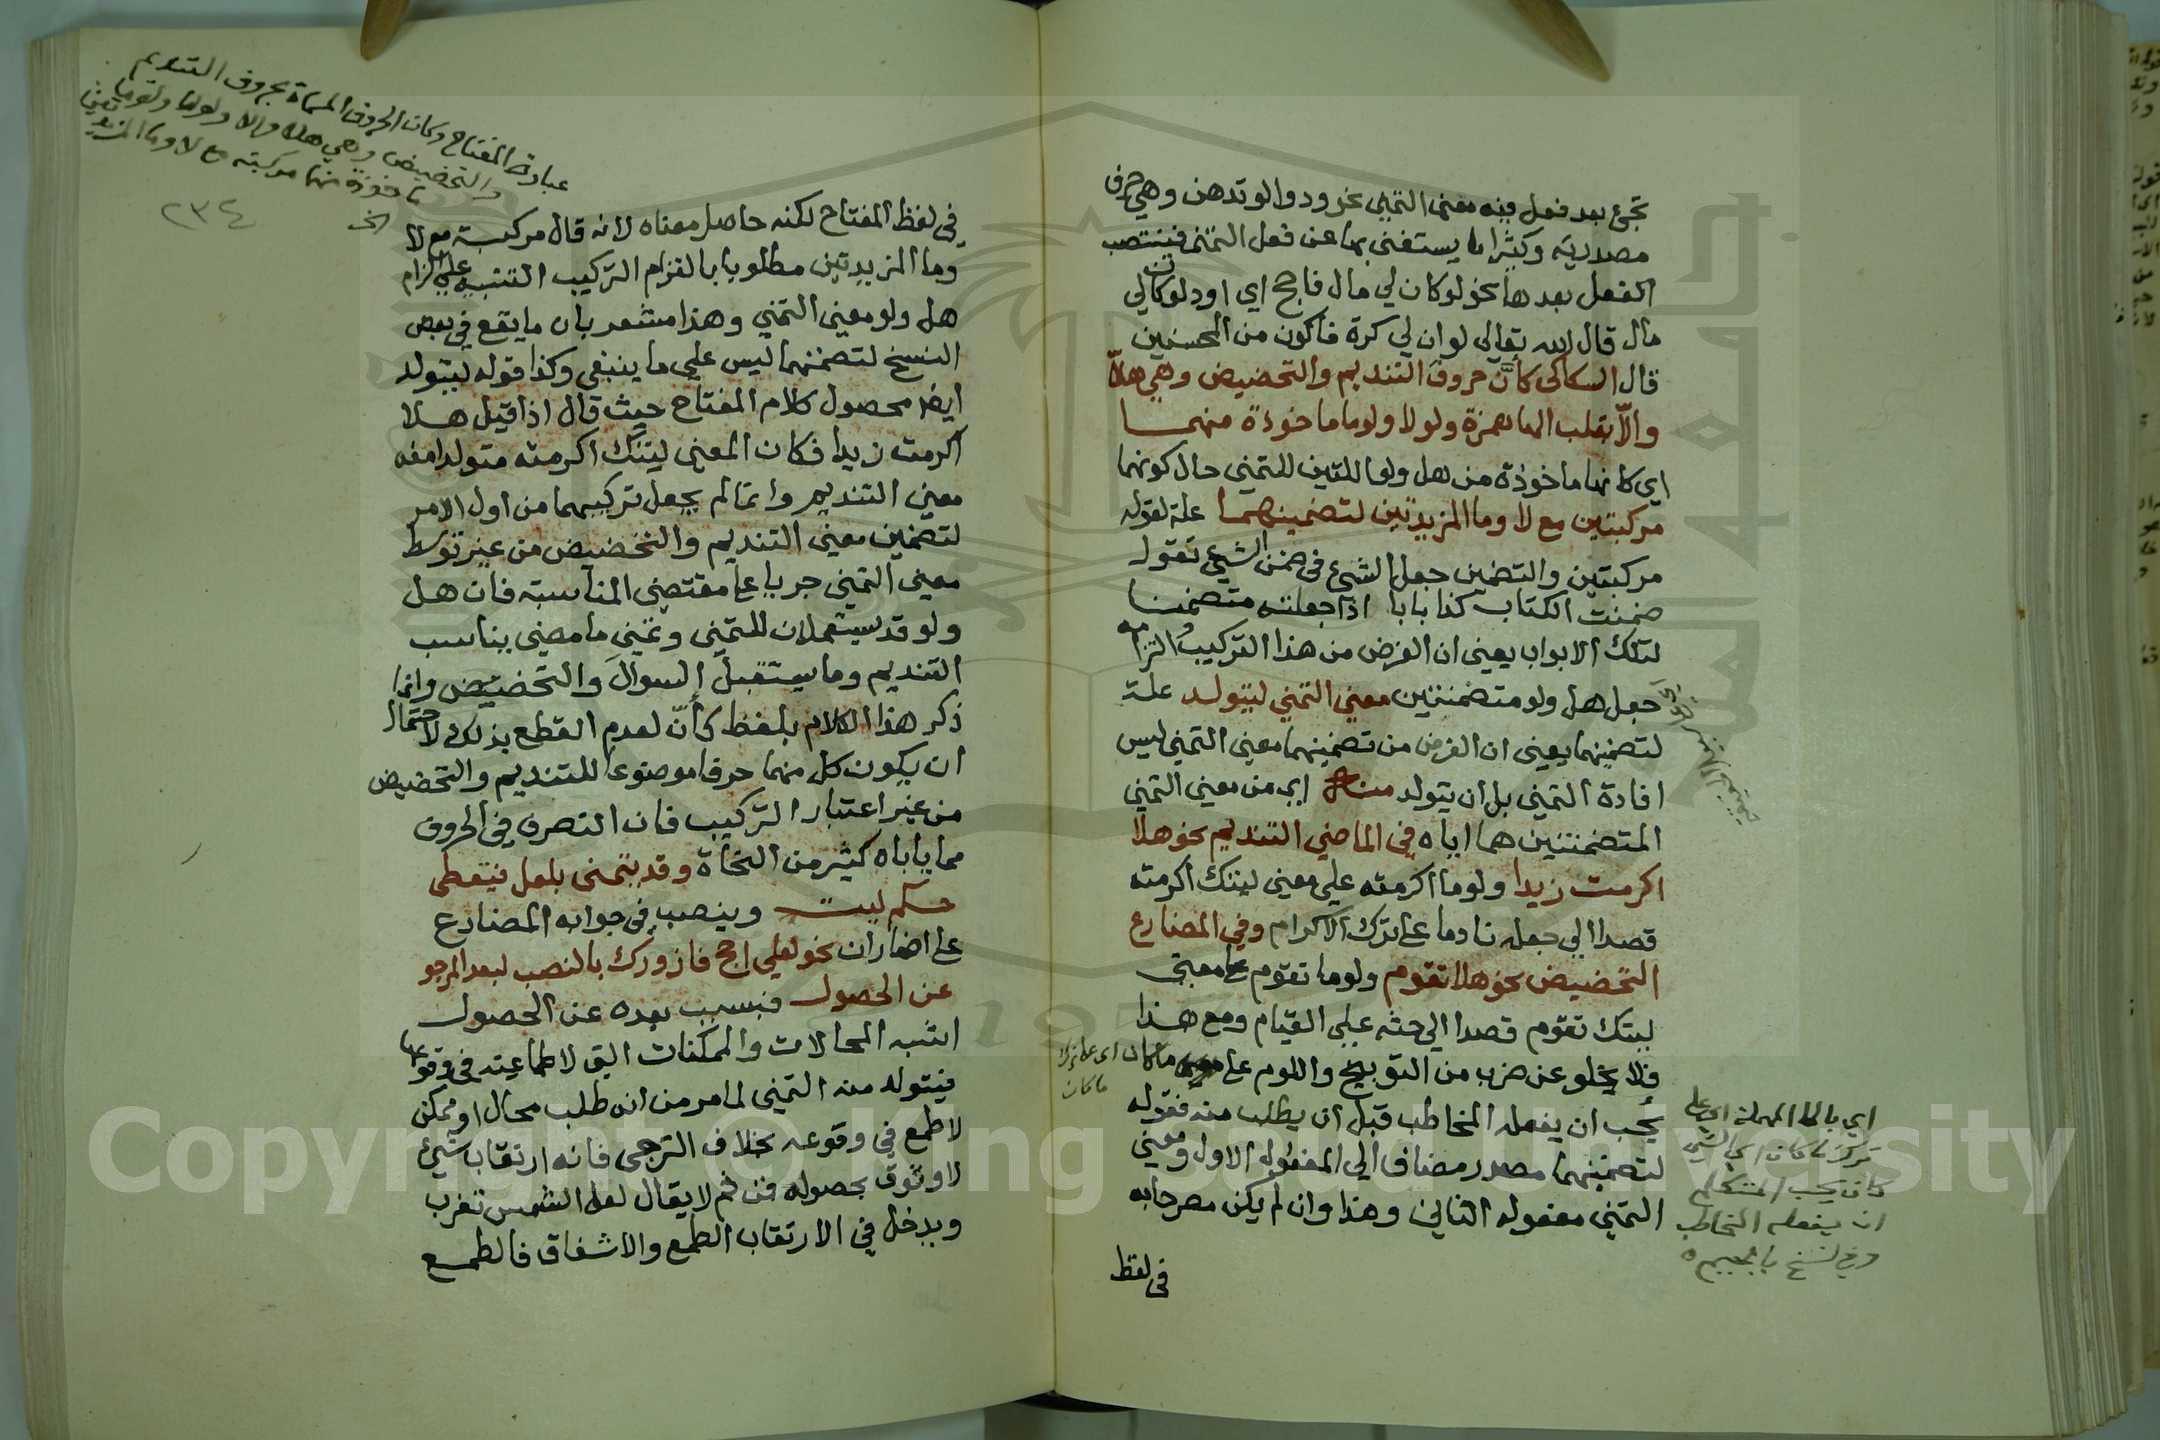 تجئ بعد فعل فيه معنى التمني نحو ودوا لو تدهن وهي حرف
مصدرية وكثيرا ما يستغنى بها عن فعل التمني فينتصب
الفعل بعدها نحو لو كان لي مال فاحج اي اود لو كان لي
مال قال الله تعالى لو ان لي كرة فاكون من المحسنين
قال السكاكى كأن حروف التنديم والتحضيض وهي هلّا
والّا بقلب الها همزة ولولا ولوما ماخوذة منهما
اي كانها ماخوذة من هل ولو اللتين للتمني حال كونهما
مركبتين مع لا وما المزيدتين لتضمينهما علة لقوله
مركبتين والتضمين جعل الشيء في ضمن الشيء تقول
ضمنت الكتاب كذا بابا اذا جعلته متضمنا
لتلك الابواب يعني ان الغرض من هذا التركيب والتزامه
جعل هل ولو متضمنتين معني التمني ليتولد علة
لتضمينهما يعني ان الغرض من تضمينهما معني التمني ليس
افادة التمني بل ان يتولد منه اي من معني التمني
المتضمنتين هما اياه في الماضي التنديم نحو هلا
اكرمت زيدا ولوما اكرمته علي معني ليتك اكرمته
قصدا الي جعله نادما على ترك الاكرام وفي المضارع
التحضيض نحو هلا تقوم ولوما تقوم على معنى
ليتك تقوم قصدا الي حثه علي القيام ومع هذا
فلا يخلو عن ضرب من التوبيخ واللوم على ما كان
يجب ان يفعله المخاطب قبل ان يطلب منه فقوله
لتضمينهما مصدر مضاف الي المفعول الاول ومعني
التمني مفعوله الثاني وهذا وان لم يكن مصرحا به
في لفظ
اي على ترك
ما كان
اي بالحا المهملة اي على
ترك ما كان
كان يحب المتكلم
ان يفعله المخاطب
وفي نسخ بالجيم
عبارة المفتاح وكان الحروف المسماة بحروف التنديم
والتحضيض وهي هلا والا ولولا ولوما
ماخوذة منها مركبة مع لا وما المزيدتين
الخ
٢٣٤
في لفظ المفتاح لكنه حاصل معناه لانه قال مركبة مع لا
وما المزيدتين مطلوبا بالتزام التركيب التنبيه علي الزام
هل ولو معني التمني وهذا مشعر بان ما يقع في بعض
النسخ لتضمنهما ليس علي ما ينبغي وكذا قوله ليتولد
ايضا محصول كلام المفتاح حيث قال اذا قيل هلا
اكرمت زيدا فكان المعني ليتك اكرمته متولدا منه
معني التنديم وانما لم يجعل تركيبهما من اول الامر
لتضمين معني التنديم والتحضيض من غير توسط
معني التمني جريا على مقتضي المناسبة فان هل
ولو قد يستعملان للتمني وتمني ما مضي يناسب
التنديم وما يستقبل السوال والتحضيض وانما
ذكر هذا الكلام بلفظ كأنّ لعدم القطع بذلك لاحتمال
ان يكون كل منهما حرفا موضوعا للتنديم والتحضيض
من غير اعتبار التركيب فان التصرف في الحروف
مما ياباه كثير من النحاة وقد يتمنى بلعل فيعطى
حكم ليت وينصب في جوابه المضارع
على اضمار ان نحو لعلي احج فازورك بالنصب لبعد المرجو
عن الحصول فبسبب بعده عن الحصول
اشبه المحالات والممكنات التي لا طماعية في وقوعها
فيتولد منه التمني لما مر من انه طلب محال او ممكن
لا طمع في وقوعه بخلاف الترجى فانه ارتقاب شيئ
لا وثوق بحصوله فمن ثم لا يقال لعل الشمس تغرب
ويدخل في الارتقاب الطمع والاشفاق فالطمع
Copyright © King Saud University
1957